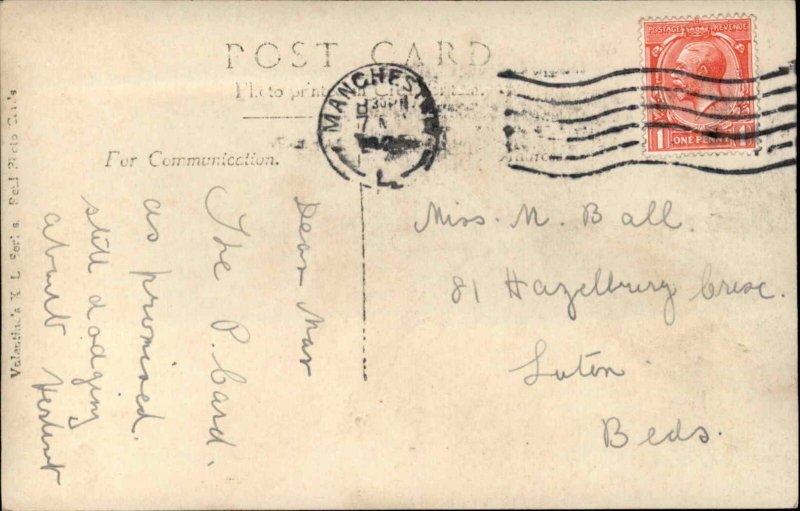 POST CARD
Photo printed
For Communication.
Address
MANCHESTER
8 30 PM
7
L
POSTAGE REVENUE
1 ONE PENNY 1
Miss. M. Ball.
81 Hazelbury Cresc.
Luton
Beds.
Dear Mar
The P. Card,
as promised.
still dodging
about Herbert
Valentine's X L Series. Real Photo